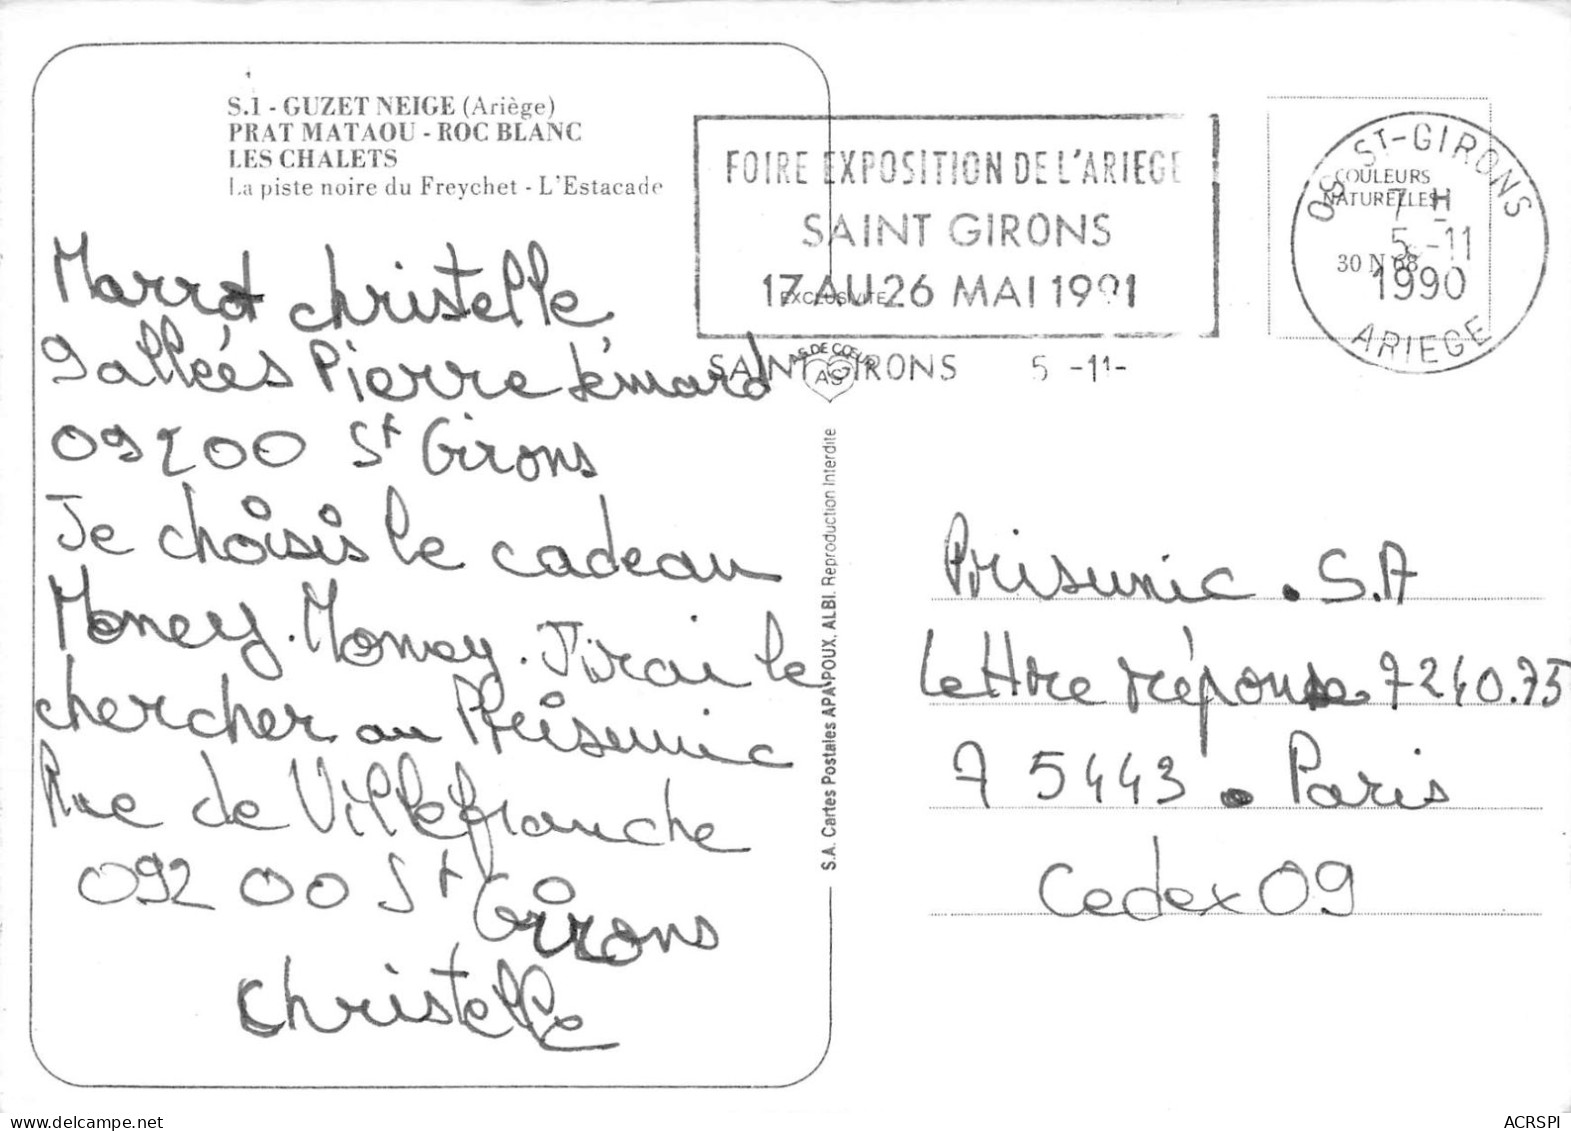 S.1 - GUZET NEIGE (Ariège)
PRAT MATAOU - ROC BLANC
LES CHALETS
La piste noire du Freychet - L'Estacade
Marrot christelle
9 allées Pierre Sémard
09200 St Girons
Je choisis le cadeau
Money. Money. J'irai le
chercher au Prisunic
Rue de Villefranche
09200 St Girons
christelle
FOIRE EXPOSITION DE L'ARIEGE
SAINT GIRONS
17 AU 26 MAI 1991
EXCLUSIVITE
SAINT GIRONS 5 -11-
AS DE CŒUR
AS
COULEURS
NATURELLES
30 N 68
09 ST-GIRONS 09
7 H
5 -11
1990
ARIEGE
S.A. Cartes Postales APA-POUX, ALBI. Reproduction Interdite
Prisunic . S.A
Lettre réponse 7240.75
75443 . Paris
Cedex 09
ACRSPI